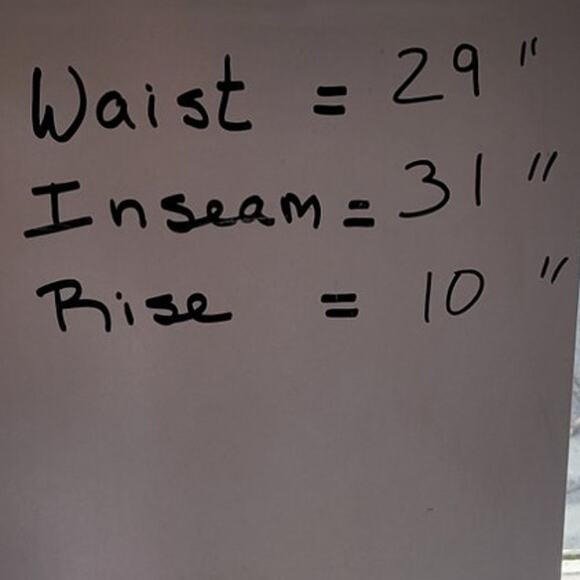 Waist = 29"
Inseam = 31"
Rise = 10"